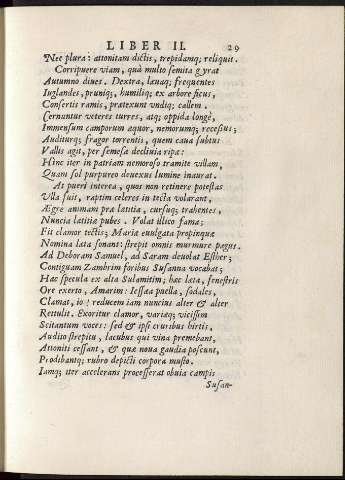 LIBER II. 29
Nec plura: attonitam dictis, trepidamq; reliquit.
Corripuere viam, quà multo semita gyrat
Autumno diues. Dextra, læuaq; frequentes
Iuglandes, pruniq;, humiliq; ex arbore ficus,
Consertis ramis, prætexunt vndiq; callem.
Cernuntur veteres turres, atq; oppida longè,
Immensum camporum æquor, nemorumq; recessus;
Auditurq; fragor torrentis, quem caua subtus
Vallis agit, per semesa decliuia ripæ:
Hinc iter in patriam nemoroso tramite villam,
Quam sol purpureo deuexus lumine inaurat.
At pueri interea, quos non retinere potestas
Vlla fuit, raptim celeres in tecta volarant,
Ægre animam præ lætitia, cursuq; trahentes,
Nuncia lætitiæ pubes. Volat illico fama;
Fit clamor tectis; Mariæ euulgata propinquæ
Nomina lata sonant: strepit omnis murmure pagus.
Ad Deboram Samuel, ad Saram deuolat Esther;
Contiguam Zambrim foribus Susanna vocabat;
Hæc specula ex alta Sulamitim; hæc lata, fenestris
Ore exerto, Amarim: Iessæa puella, sodales,
Clamat, io! reducem iam nuncius alter & alter
Rettulit. Exoritur clamor, variæq; vicissim
Scitantum voces: sed & ipsi cruribus hirtis,
Audito strepitu, lacubus qui vina premebant,
Attoniti cessant, & quæ noua gaudia poscunt,
Prodibantq; rubro depicti corpora musto.
Iamq; iter accelerans processerat obuia campis
Susan-